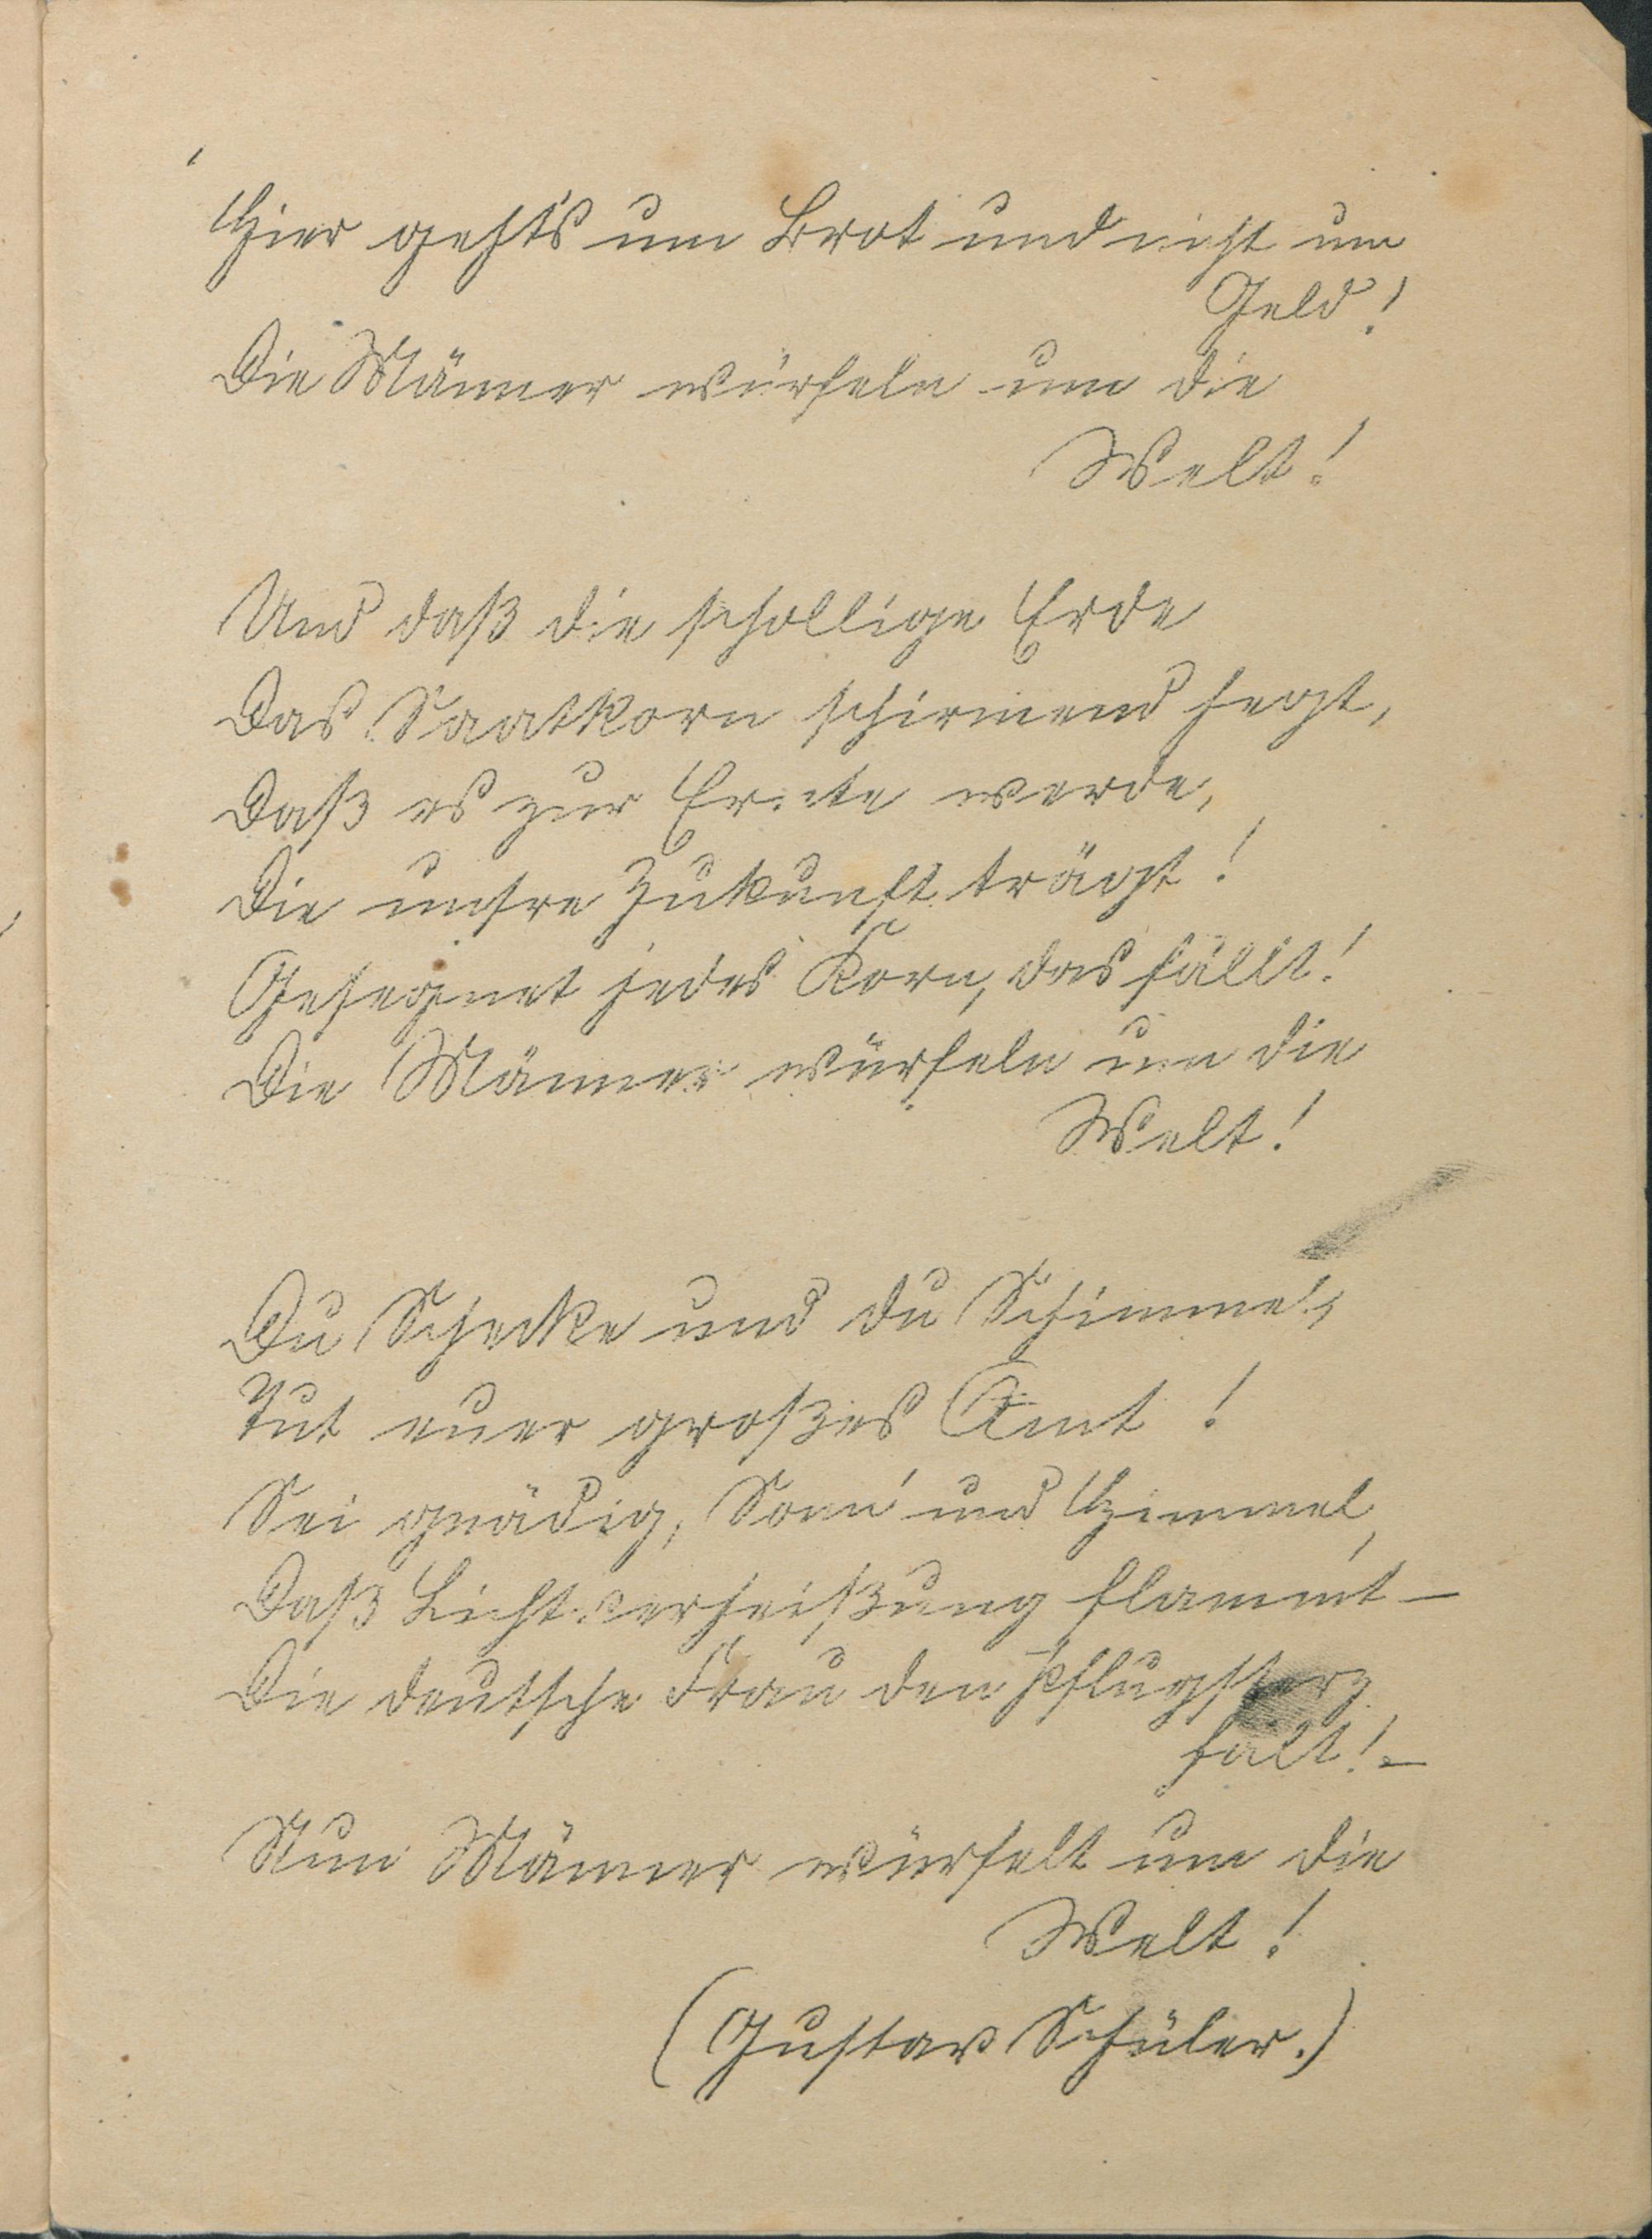 Hier geht's um Brot und nicht um
Geld!
Die Männer würfeln um die
Welt!
Und daß die schollige Erde
Das Saatkorn schirmend hegt,
Daß es zur Ernte werde,
Die unsre Zukunft trägt!
Gesegnet jedes Korn, das fällt!
Die Männer würfeln um die
Welt!
Du Schecke und du Schimmel,
Tut euer großes Amt!
Sei gnädig, Sonn' und Himmel,
Daß Lichtverheißung flammt –
Die deutsche Frau den Pflugsterz
hält! –
Nun Männer würfelt um die
Welt!
(Gustav Schüler.)